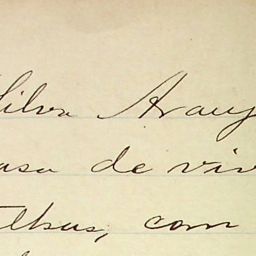 Silva Arauj
casa de viv
telhas, com